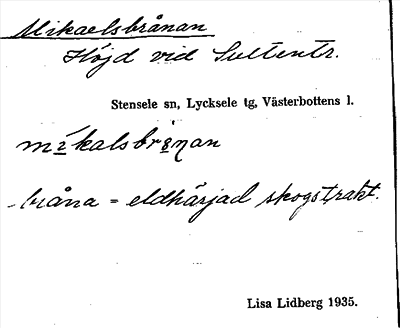 Mikaelsbrånan
Höjd vid Sultentr.
Stensele sn, Lycksele tg, Västerbottens l.
bråna = eldhärjad skogstrakt.
Lisa Lidberg 1935.